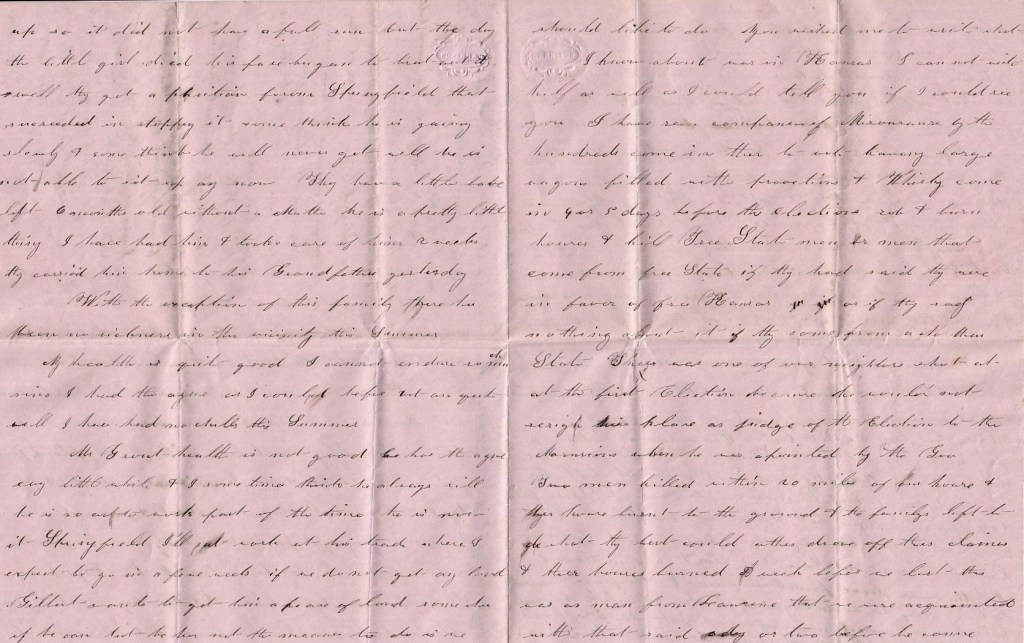 up so it did not have a full run but the day
the little girl died his face began to break out &
swell thy got a phisition from Springfield that
succeeded in stoppig it some think he is gaing
slowly & some think he will never get well he is
not able to sit up ay now Thy have a little babe
left 6 months old without a Mother he is a pretty little
thing I have had him & took care of him 2 weeks
thy carried him home to his Grandfathers yesterday
With the exception of this family there has
been no sickness in this vicinity this Summer
My health is quit good I cannot endure so much
since I had the ague as I could before but am quite
well I have had no chills this Summer
Mr Grout health is not good he has the ague
evry little while & I some times think he always will
he is so as to work part of the time he is now
it Springfield Ill at work at his trade where I
expect to go in a few weeks if we do not get any land
Gilbert wants to get him a peace of land some where
if he can but he has not the means to do is we
should like to do You wished me to write what
I know about was in Kansas I can not write
half as well as I could tell you if I could see
you I have seen companes of Missourians by the
hundreds come in ther to vote having large
wagons filled with provetions & Whisky come
in 4 or 5 days before the elections rob & burn
houses & kill Free State men or men that
come from free State if thy had said thy were
in favor of free Kansas or if thy said
nothing about it if thy come from a other
State was one of our neighbors shot at
at the first Election because he would not
resign his place as judge of th Election to the
Missourians when he was apointed by the Gov
Two men killed within 20 miles of our house &
ther house burnt to the ground & the familys left to
do what thy best could others drove off ther claimes
& ther houses burned A week before we left ther
was a man from that we were acquainted
with that said a day or two before he come